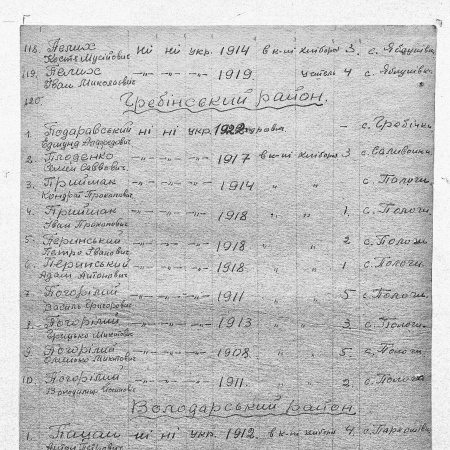 118. Пелих ні ні укр. 1914 в к-пі хлібороб 3. с. Яблунівка
Кость Мусійович
119. Пелих -"- -"- -"- 1919. учитель 4 с. Яблунівка
Іван Миколайович
120.
Гребінківський район.
1. Подаравський ні ні укр. 1922 — с. Гребінки
Едмунд
2. Плоденко -"- -"- -"- 1917 в к-пі хлібороб 3 с. Саливонки
Семен Саввович
3. Приймак -"- -"- -"- 1914 " " с. Пологи
Кондрат Прокопович
4. Приймак -"- -"- -"- 1918 " " 1. с. Пологи
Іван Прокопович
5. Перинський -"- -"- -"- 1918 " " 2 с. Пологи
Петро Іванович
6. Перинський -"- -"- -"- 1918 " " 1 с. Пологи
Адам Антонович
7. Погорілий -"- -"- -"- 1911 " " 5 с. Пологи
Василь Григорович
8. Погорілий -"- -"- -"- 1913 " " 3 с. Пологи
Микитович
9. Погорілий -"- -"- -"- 1908 " " 5 с. Пологи
Микитович
10. Погорілий -"- -"- -"- 1911. " " 2 с. Пологи
Володимир
Володарський район.
1. Пацан ні ні укр. 1912. в к-пі хлібороб 4. с.
Антон Петрович